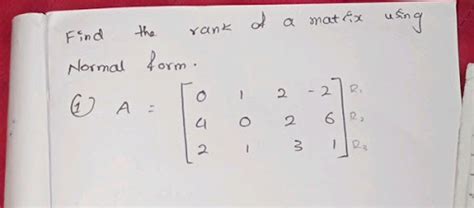 Find the rank of a matrix using
Normal form.
① A = [ 0 1 2 -2 ] R₁
4 0 2 6 R₂
2 1 3 1 R₃